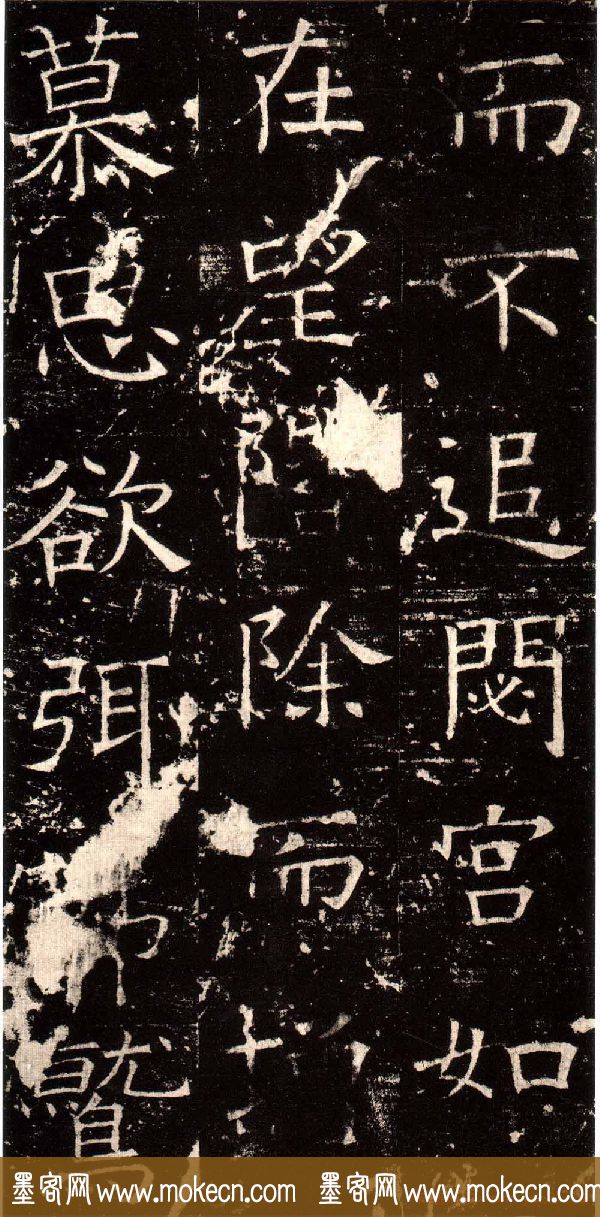 而不追閟宮如
在望階除而增
慕思欲弭節鷲
墨客网 www.mokecn.com 墨客网 www.mokecn.com